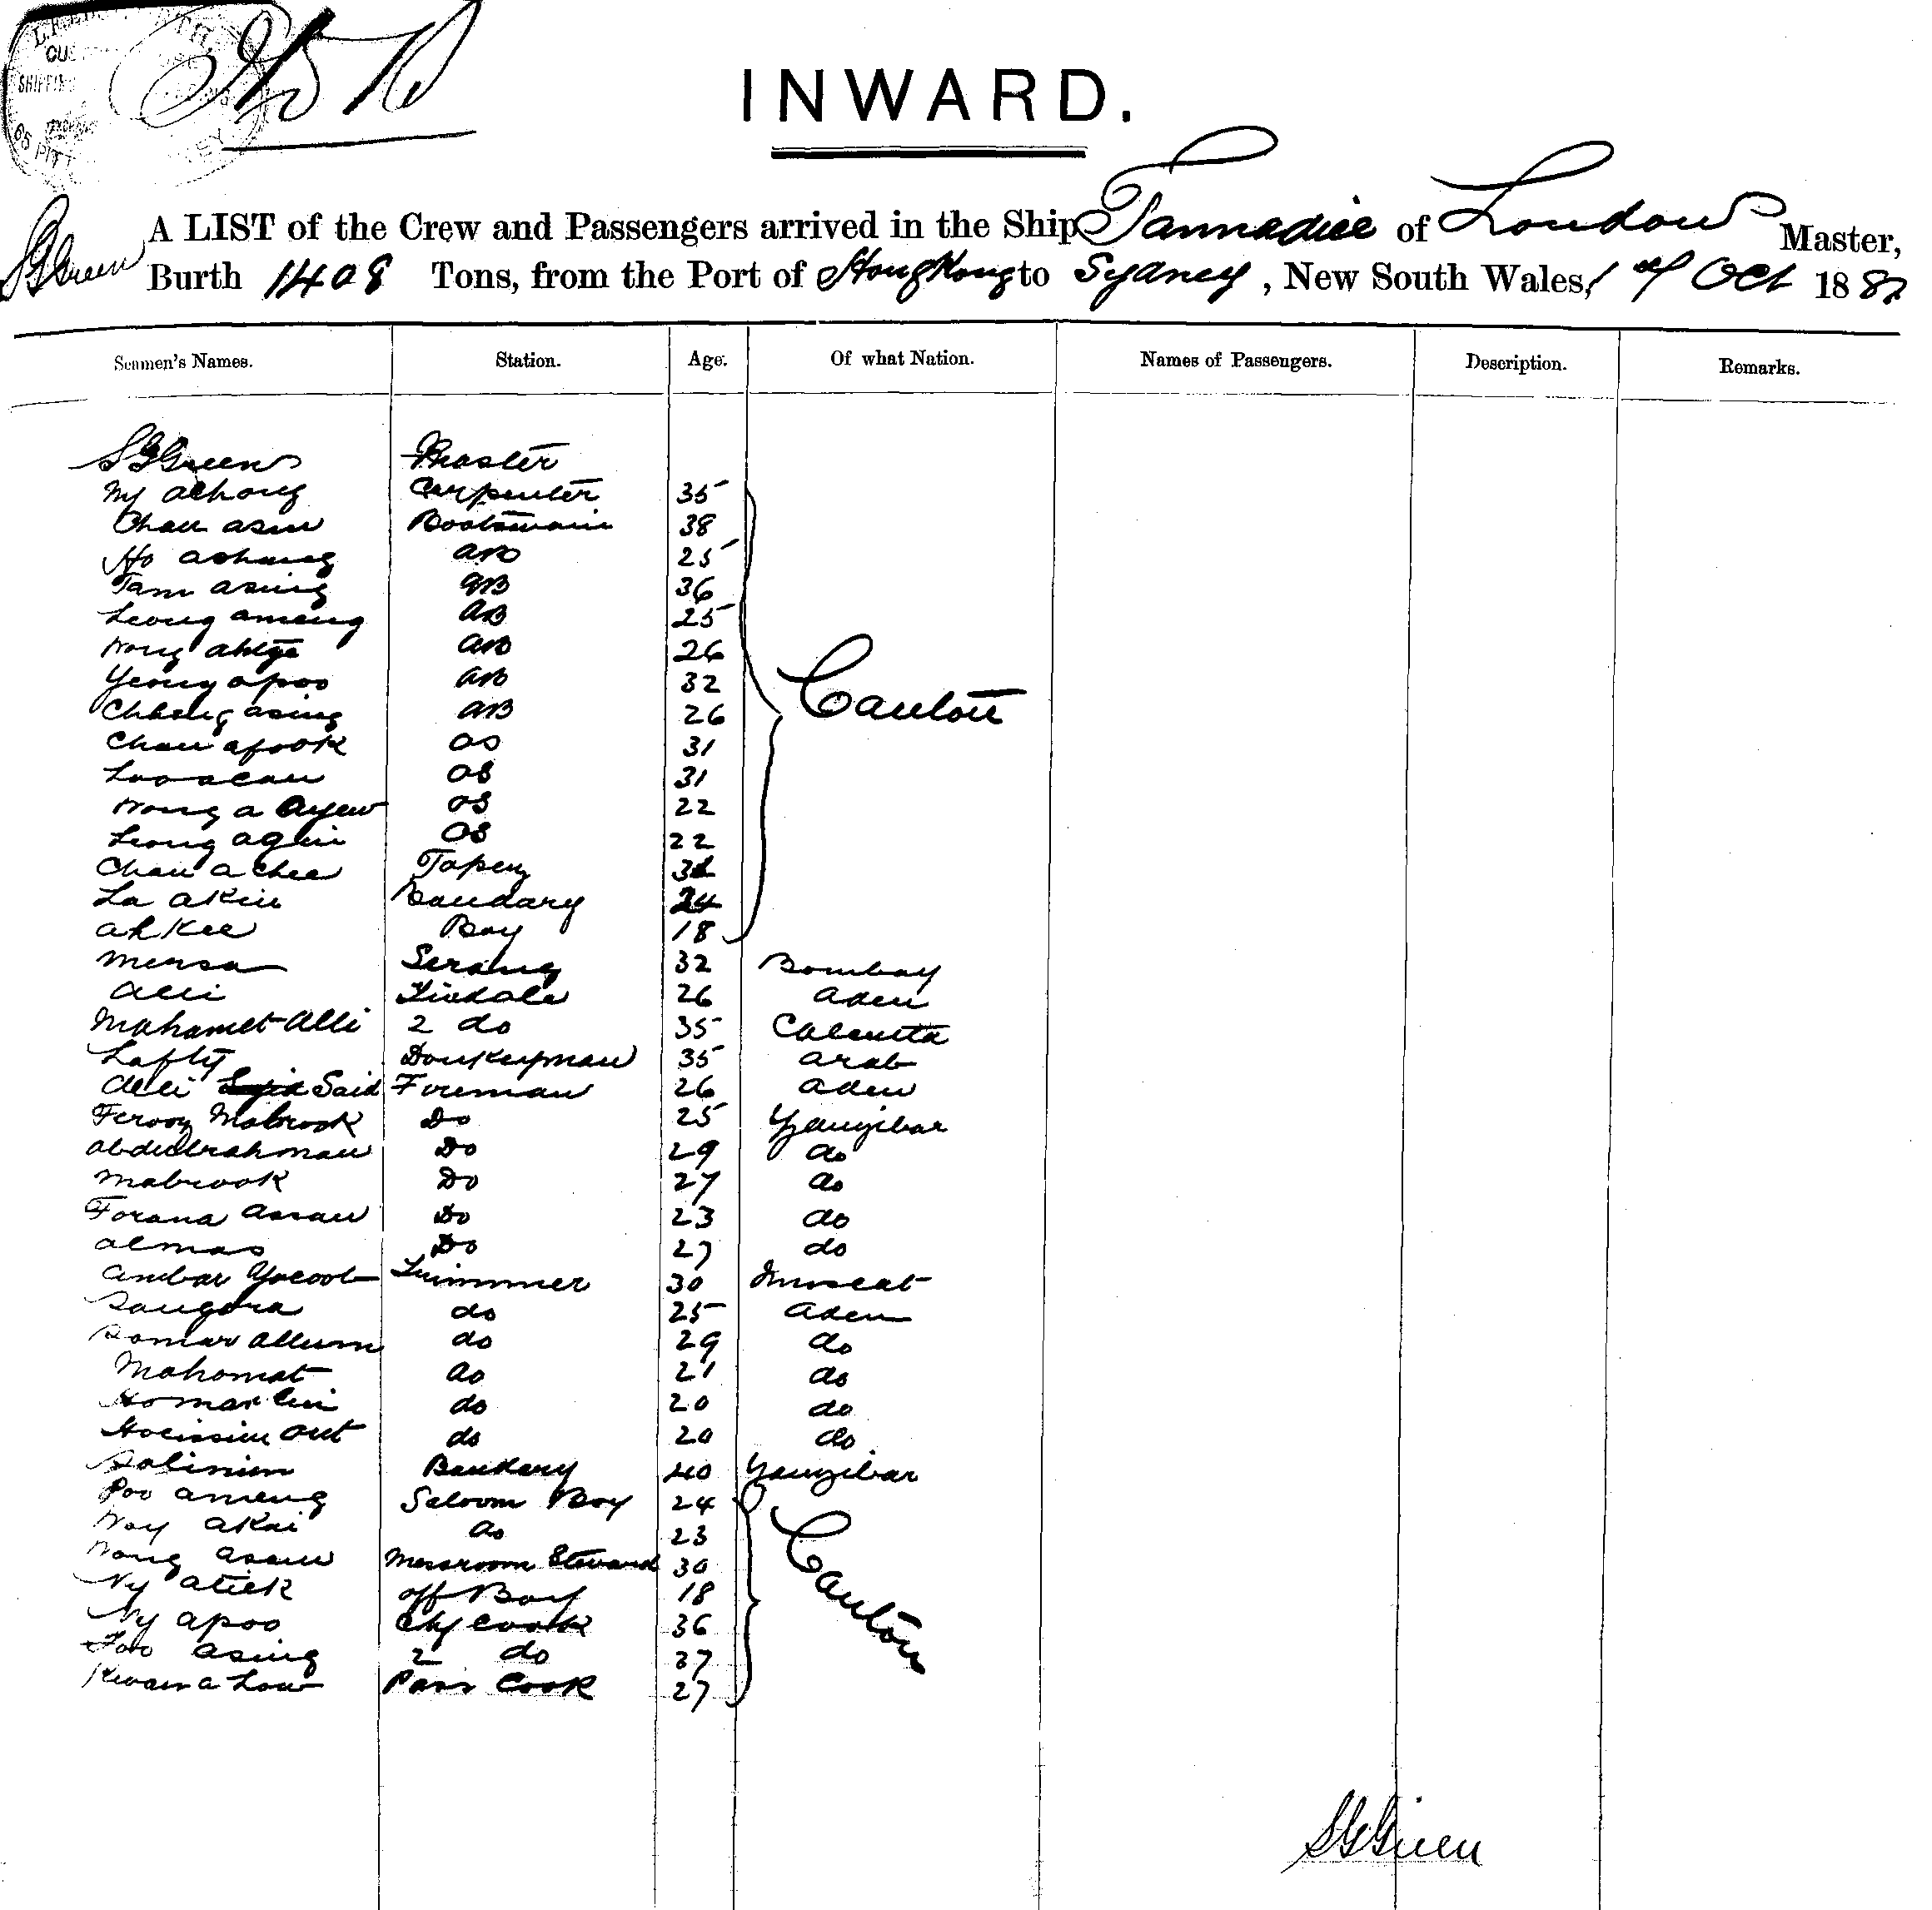 INWARD.
A LIST of the Crew and Passengers arrived in the Ship Tannadice of London
S G Green Master,
Burth 1408 Tons, from the Port of Hong Kong to Sydney, New South Wales, 1st Oct 188
Seamen's Names. Station. Age. Of what Nation. Names of Passengers. Description. Remarks.
S G Green Master
Ny achong Carpenter 35
Chan asm Boatswain 38
Ho ashung AB 25
Tam asing AB 36
Leong ameng AB 25
Wong AB 26
Yeong apoo AB 32
Cheong asing AB 26
Chan afook OS 31
OS 31
Wong a OS 22
Leong OS 22
Chan a chee Topey
La akin Bandary 24
ah Kee Boy 18
Canton
Mersa Serang 32 Bombay
Alli Tindale 26 Aden
Mahamet Alli 2 do 35 Calcutta
Lafty Donkeyman 35 Arab
Alli Said Fireman 26 Aden
Ferooz Mabrook Do 25 Zanzibar
Abdulrahman Do 29 do
Mabrook Do 27 do
Forana Assan Do 23 do
Almas Do 27 do
Ambar Yacoob Trimmer 30 Muscat
Sangora do 25 Aden
allum do 29 do
Mahomat do 21 do
do 20 do
do 20 do
Salimin Bandary 40 Zanzibar
Poo ameng Saloon Boy 24
akai do 23
Wong asam Messroom Steward 30
Ny atick off Boy 18
Ny apoo Chf Cook 36
Foo asing 2 do 27
Kwan a Low Pass Cook 27
Canton
S G Green